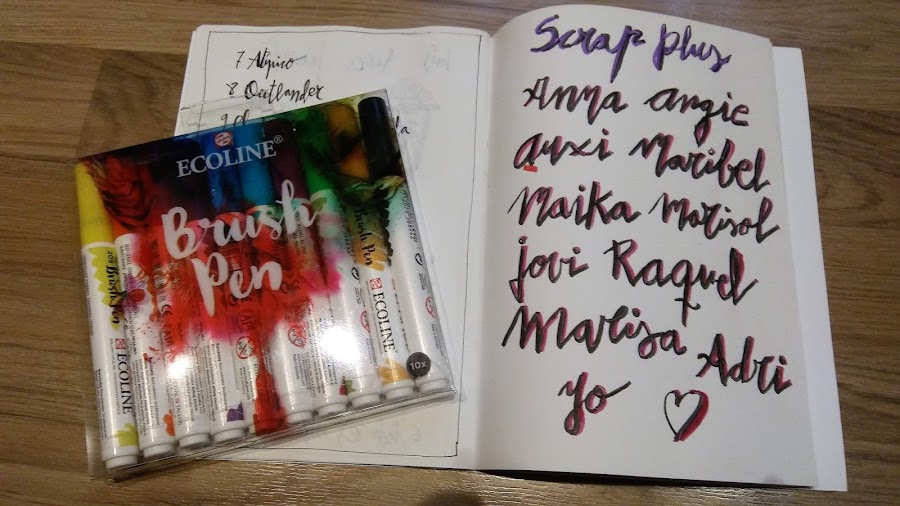 7 Atípico
8 Outlander
ECOLINE®
Brush
Pen
Brush Pen
ECOLINE
Brush Pen
ECOLINE
10x
Scrap plus
Anna Angie
auxi Maribel
Maika Marisol
jovi Raquel
Marisa
Adri
yo